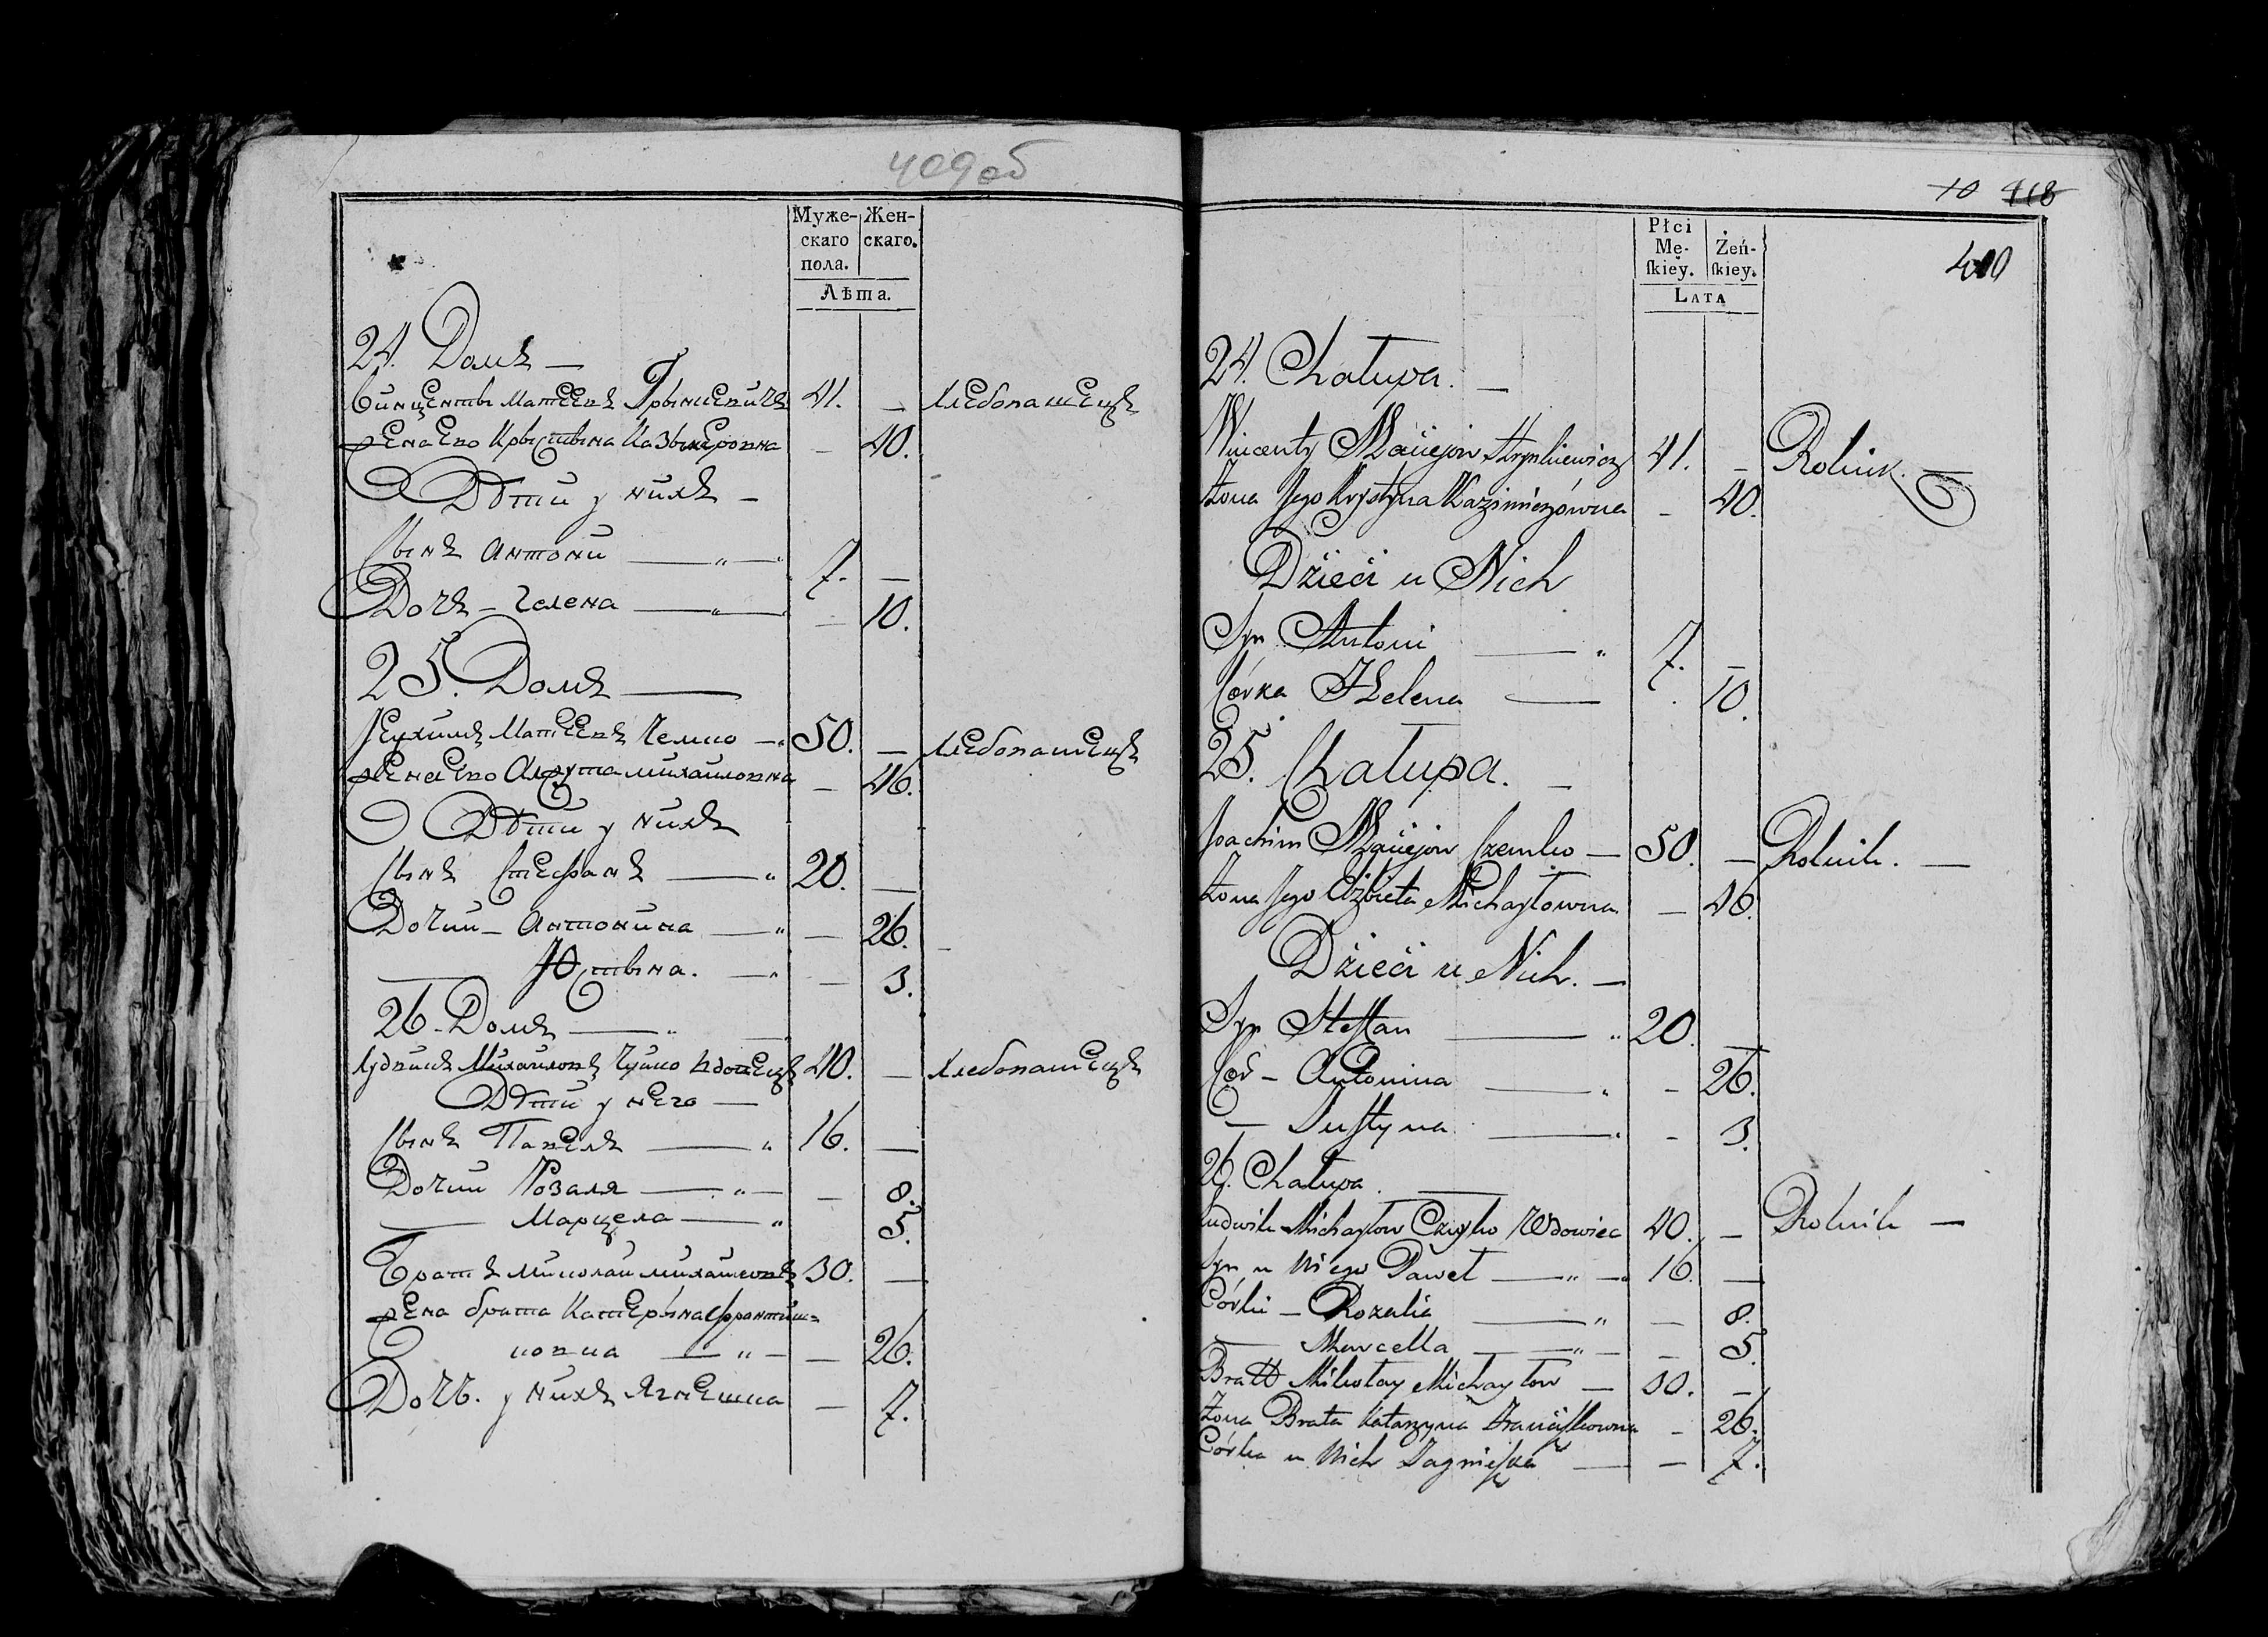 409 об
Муже-
скаго
пола.
Жен-
скаго.
Лѣта.
24. Домъ —
Винценты Матеевъ Грынкевичъ 41. — хлебопашецъ
жена его Крыстына Казымеровна — 40.
Дѣти у нихъ —
Сынъ Антони — 7. —
Дочь — Гелена — — 10.
25. Домъ —
Матеевъ Чемко — 50. — хлебопашецъ
жена его Михайловна — 46.
Дѣти у нихъ
Сынъ Стефанъ — 20. —
Дочки — Антонина — — 26.
— Юстына. — — 3.
26. Домъ —
Лудвикъ Михайловъ Чуйко вдовецъ 40. — хлебопашецъ
Дѣти у него —
Сынъ Павелъ — 16. —
Дочки Розаля — — 8.
— Марцела — 5.
Братъ Миколай Михайловъ 30. —
жена брата Катерына Франтиш=
ковна — — 26.
Дочь. у нихъ Ягнешка — 7.
10 418
410
Płci
Mę-
skiey.
Żeń-
skiey.
LATA
24. Chałupa. —
Wincenty Maciejow Hrynkiewicz 41. — Rolnik. —
Żona Jego Krystyna Kazimierzówna — 40.
Dzieci u Nich
Syn Antoni — 7. —
Córka Helena — 10.
25. Chałupa. —
Joachim Maciejow Czemko — 50. — Rolnik. —
Żona Jego Elżbieta Michayłowna — 46.
Dzieci u Nich. —
Syn Steffan — 20. —
Cór — Antonina — — 26.
— Justyna — — 3.
26. Chałupa. —
Ludwik Michayłow Czuyko Wdowiec 40. — Rolnik —
Syn u Niego Paweł — 16. —
Córki — Rozalia — — 8.
— Marcella — — 5.
Bratt Mikołay Michayłow — 30. —
Żona Brata Katarzyna Franciszkowna — 26.
Córka u Nich Jagniszka — — 7.